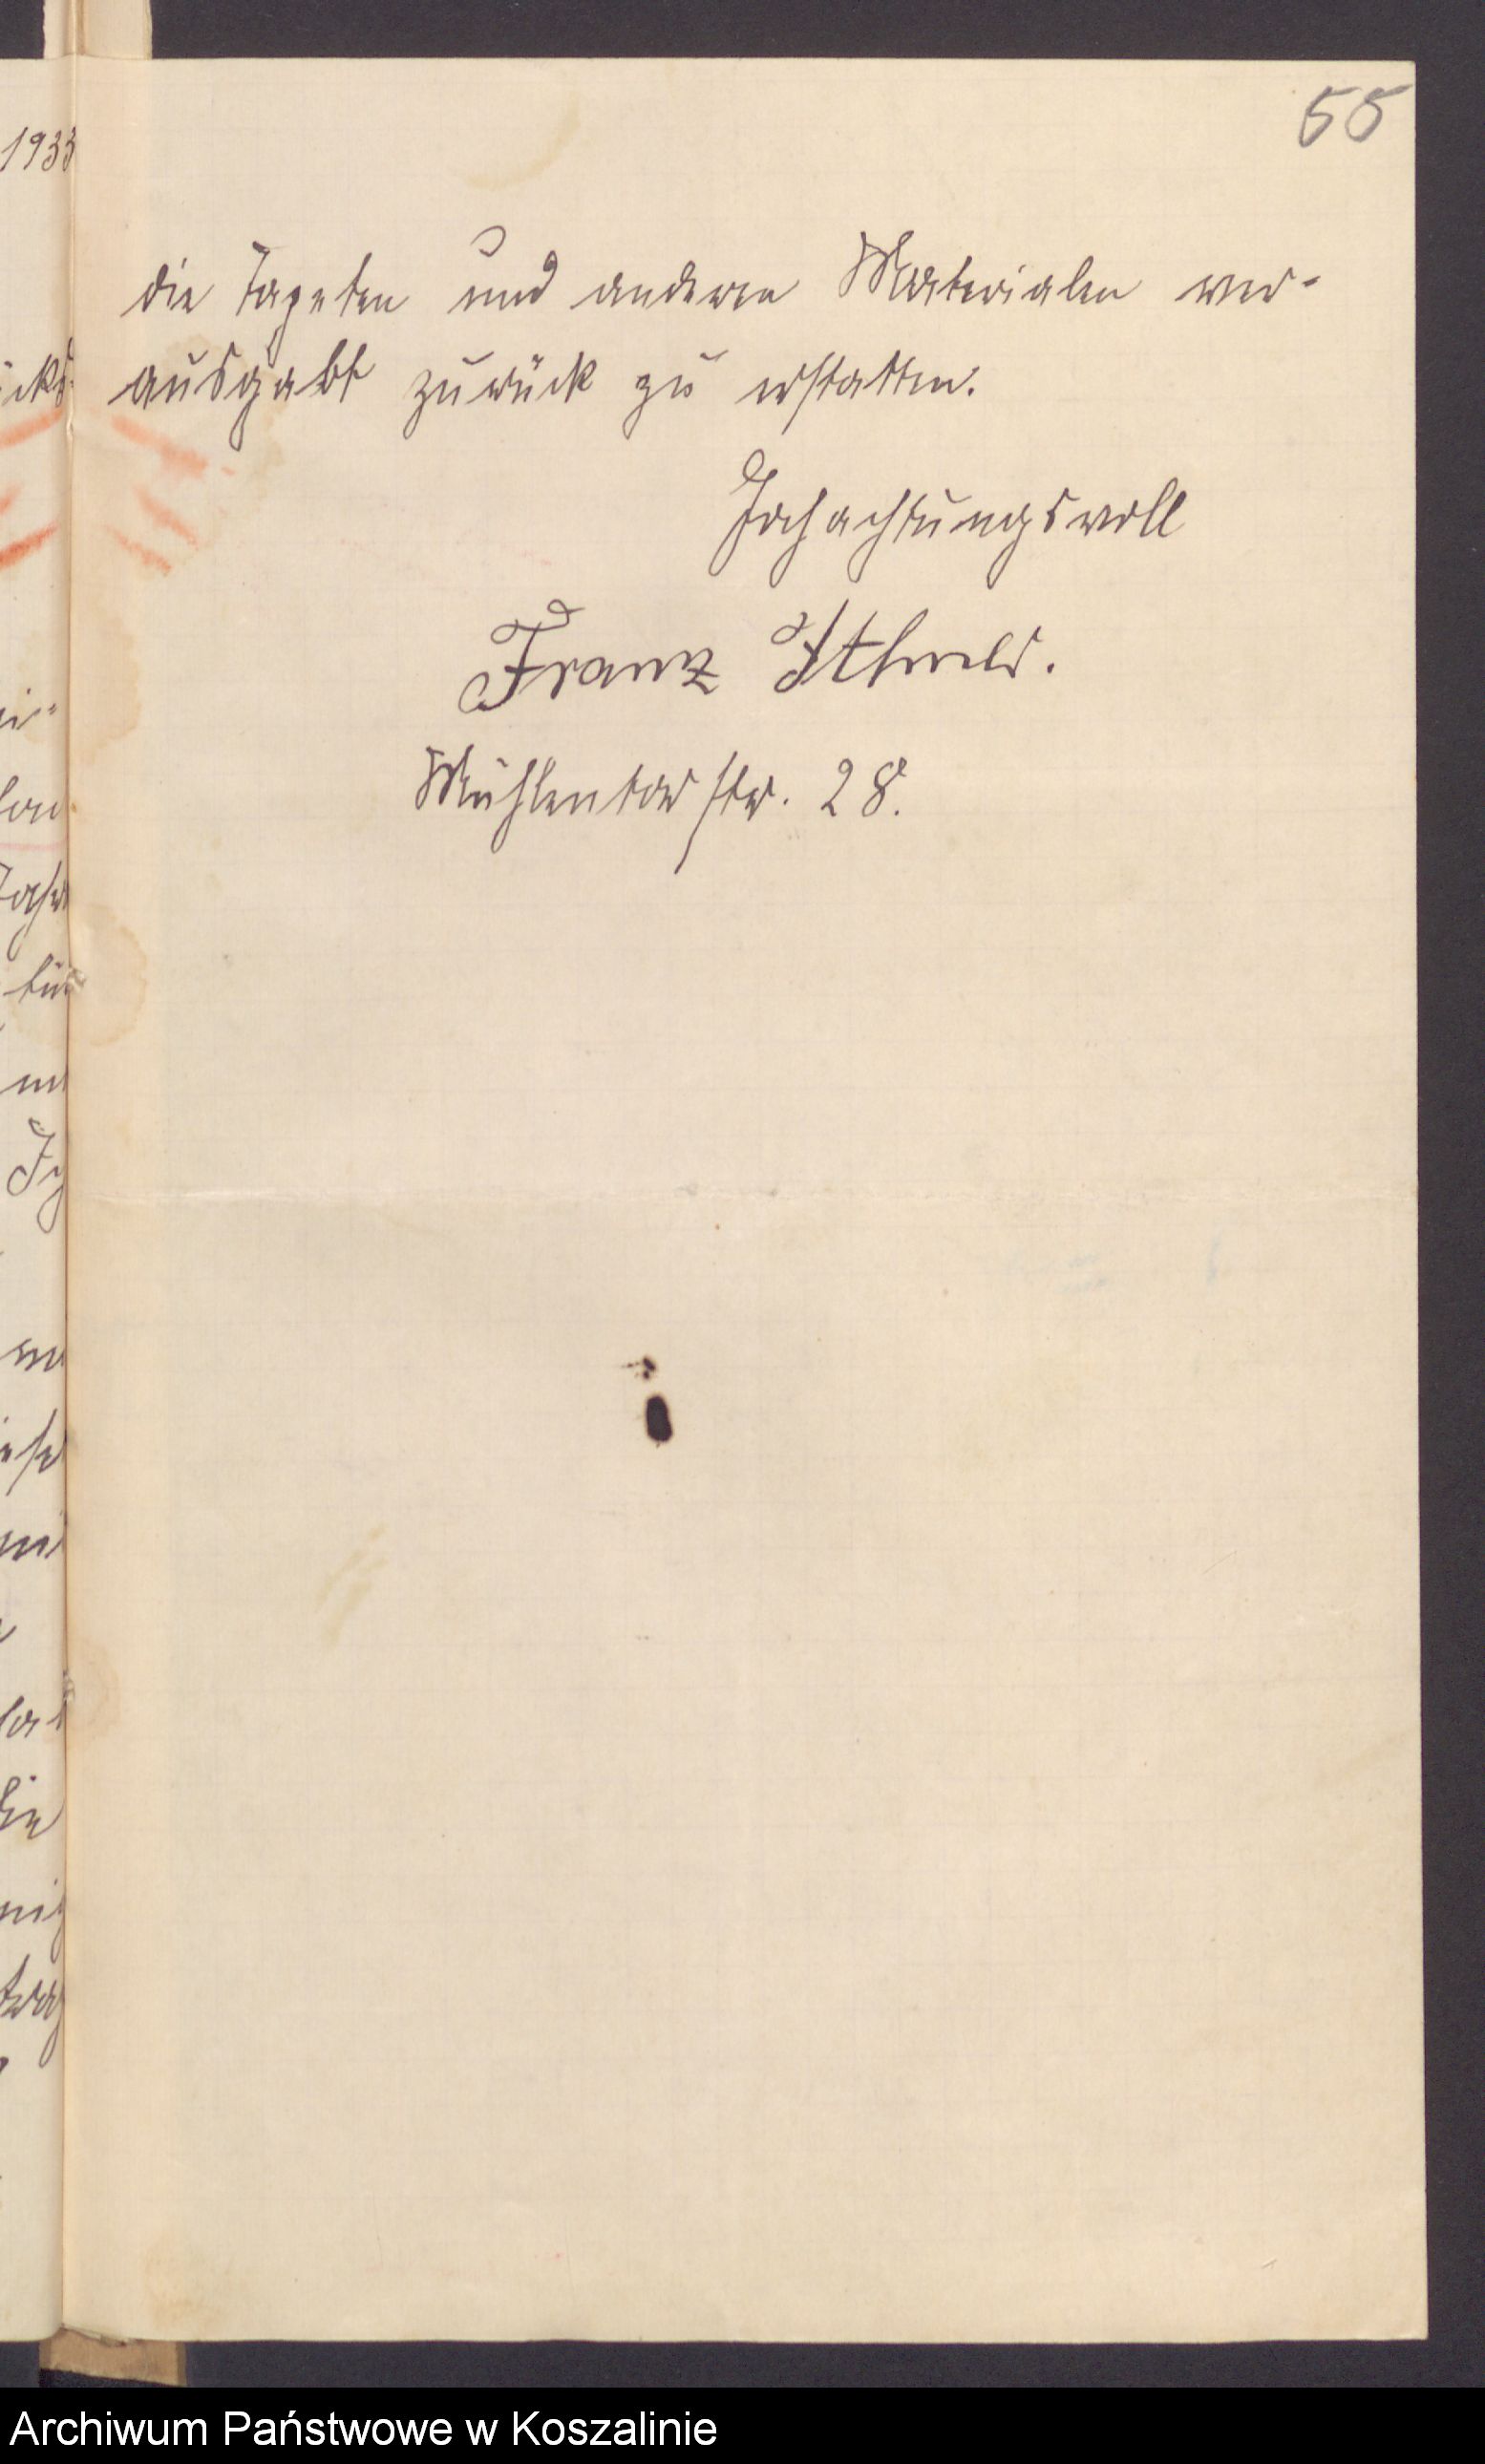 55
1933
die Tapeten und anderen Materialen ver-
ausgabt zurück zu erstatten.
Hochachtungsvoll
Franz
Mühlentorstr. 28.
Archiwum Państwowe w Koszalinie